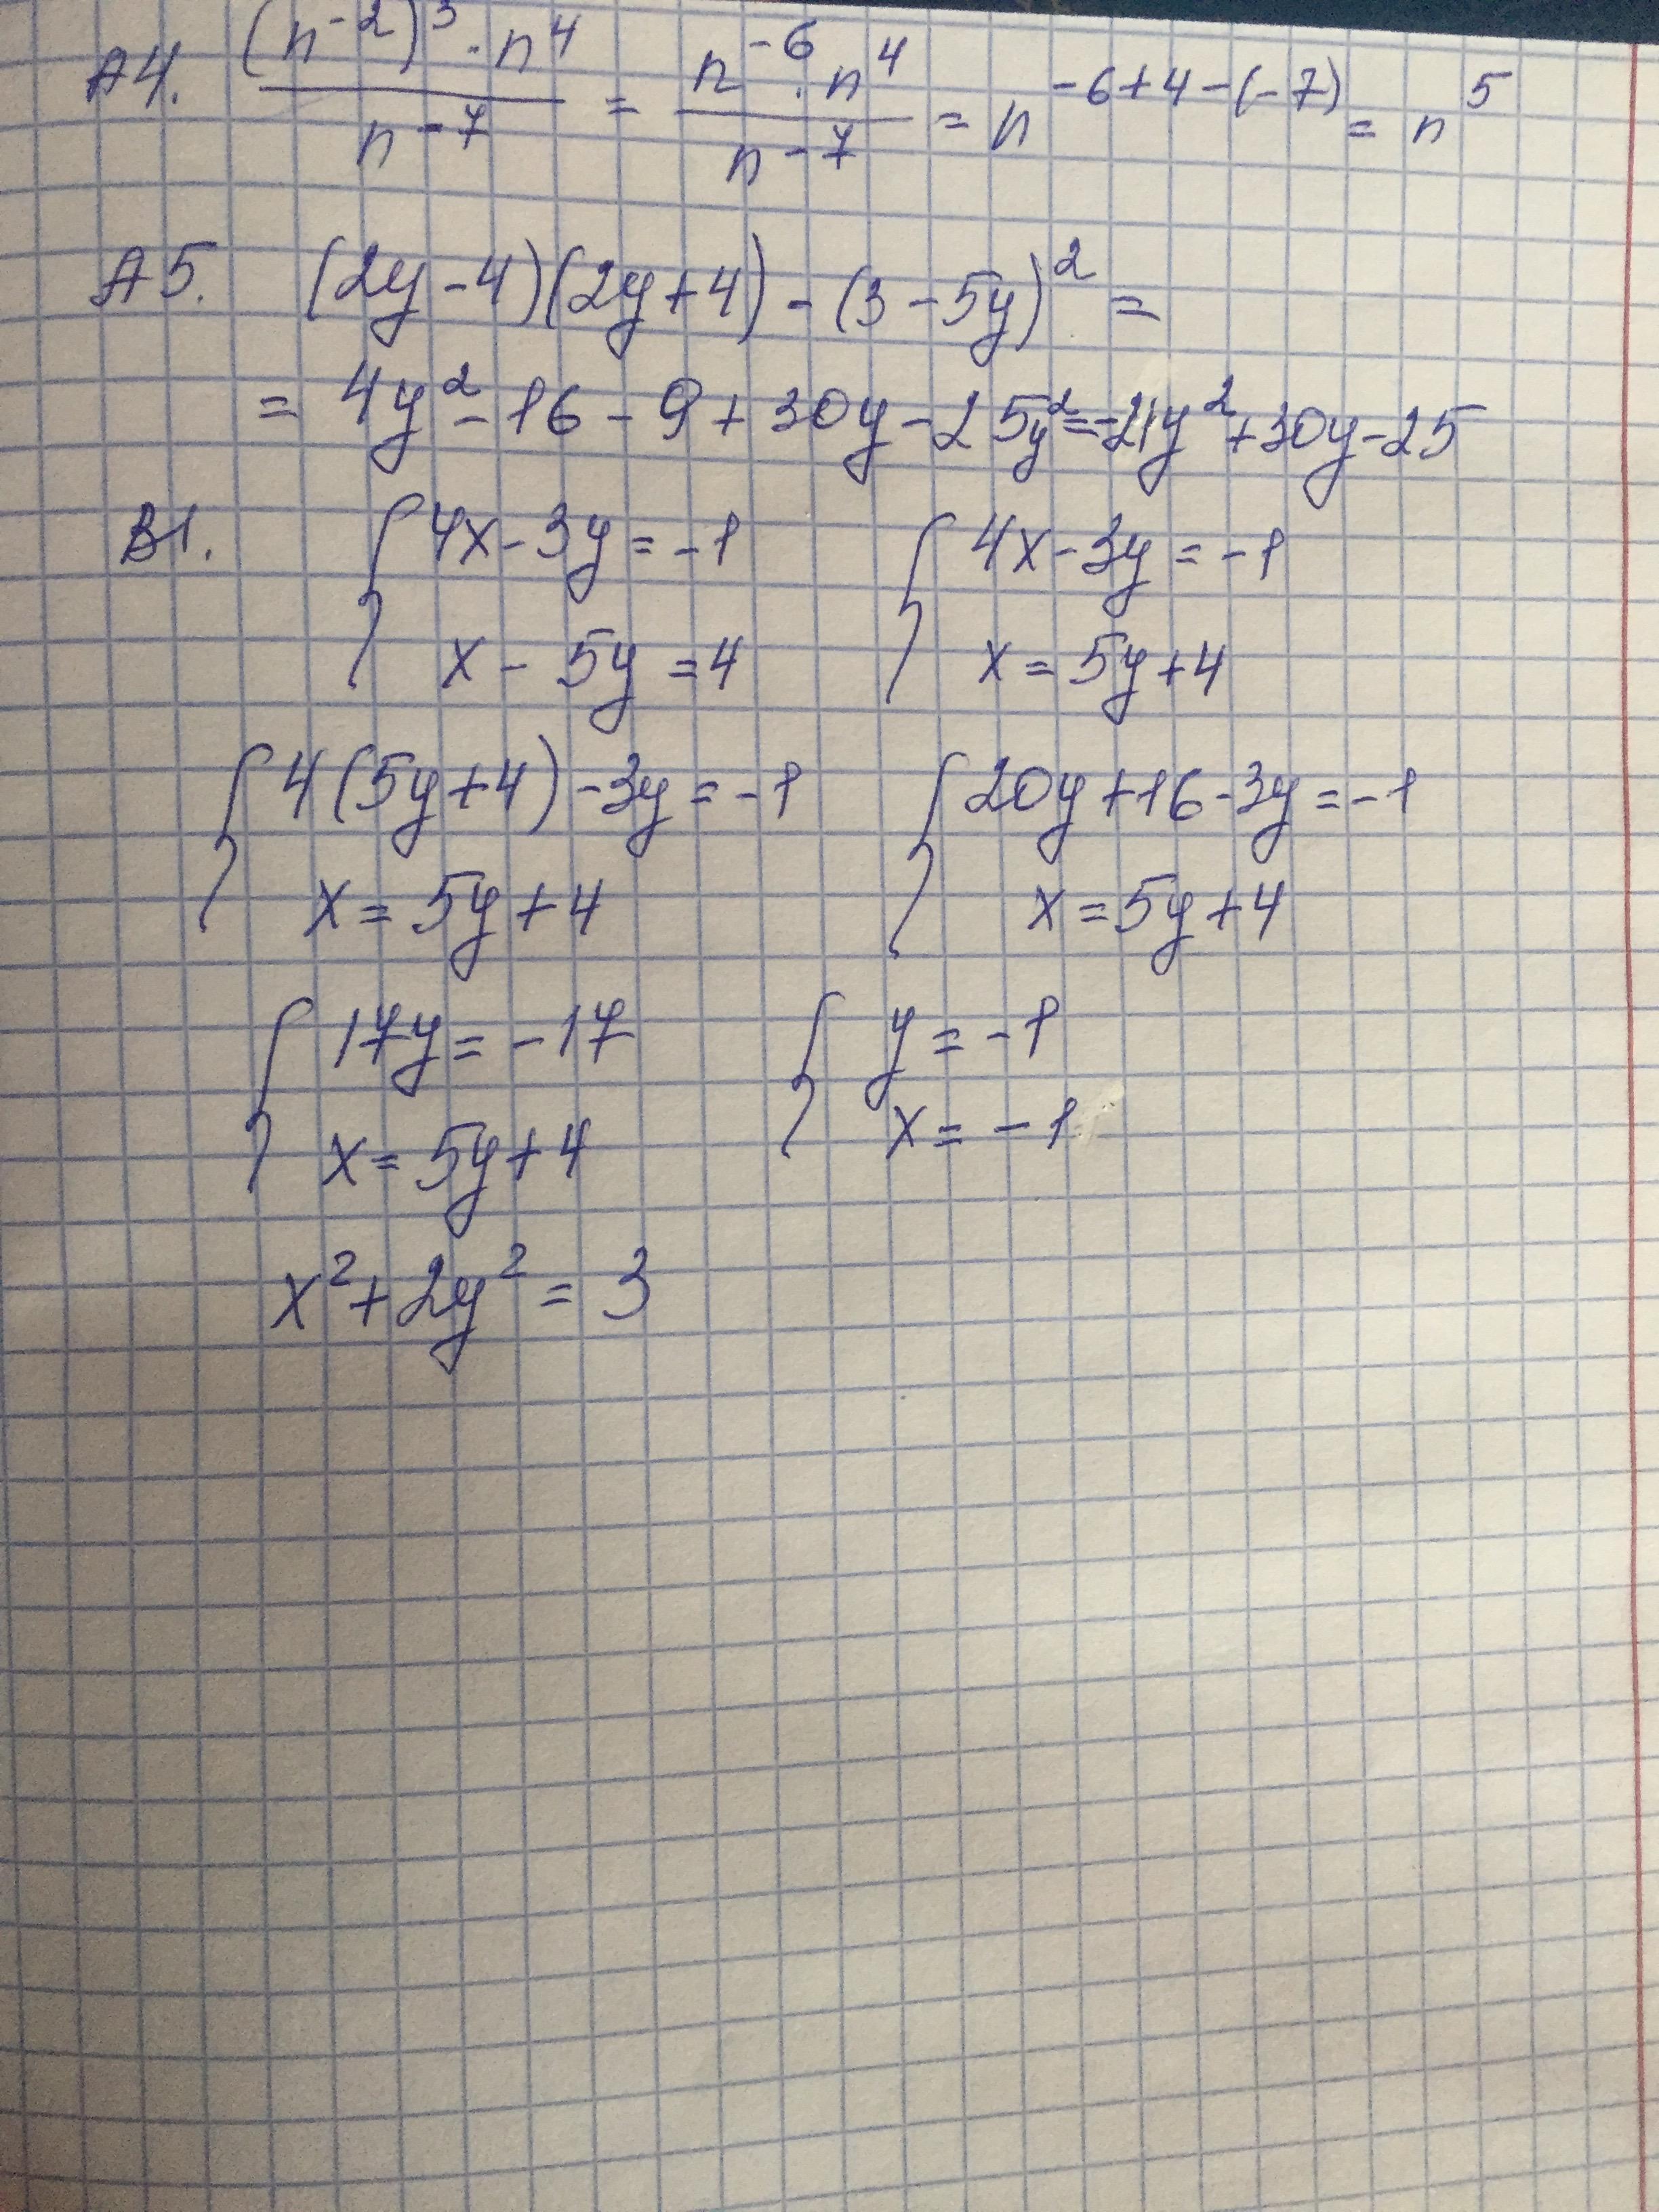 А4. (n⁻²)³ · n⁴ / n⁻⁷ = n⁻⁶ · n⁴ / n⁻⁷ = n^(-6+4-(-7)) = n⁵
А5. (2y-4)(2y+4) - (3-5y)² =
= 4y² - 16 - 9 + 30y - 25y² = -21y² + 30y - 25
В1. { 4x - 3y = -1 { 4x - 3y = -1
x - 5y = 4 x = 5y + 4
{ 4(5y+4) - 3y = -1 { 20y + 16 - 3y = -1
x = 5y + 4 x = 5y + 4
{ 17y = -17 { y = -1
x = 5y + 4 x = -1
x² + 2y² = 3